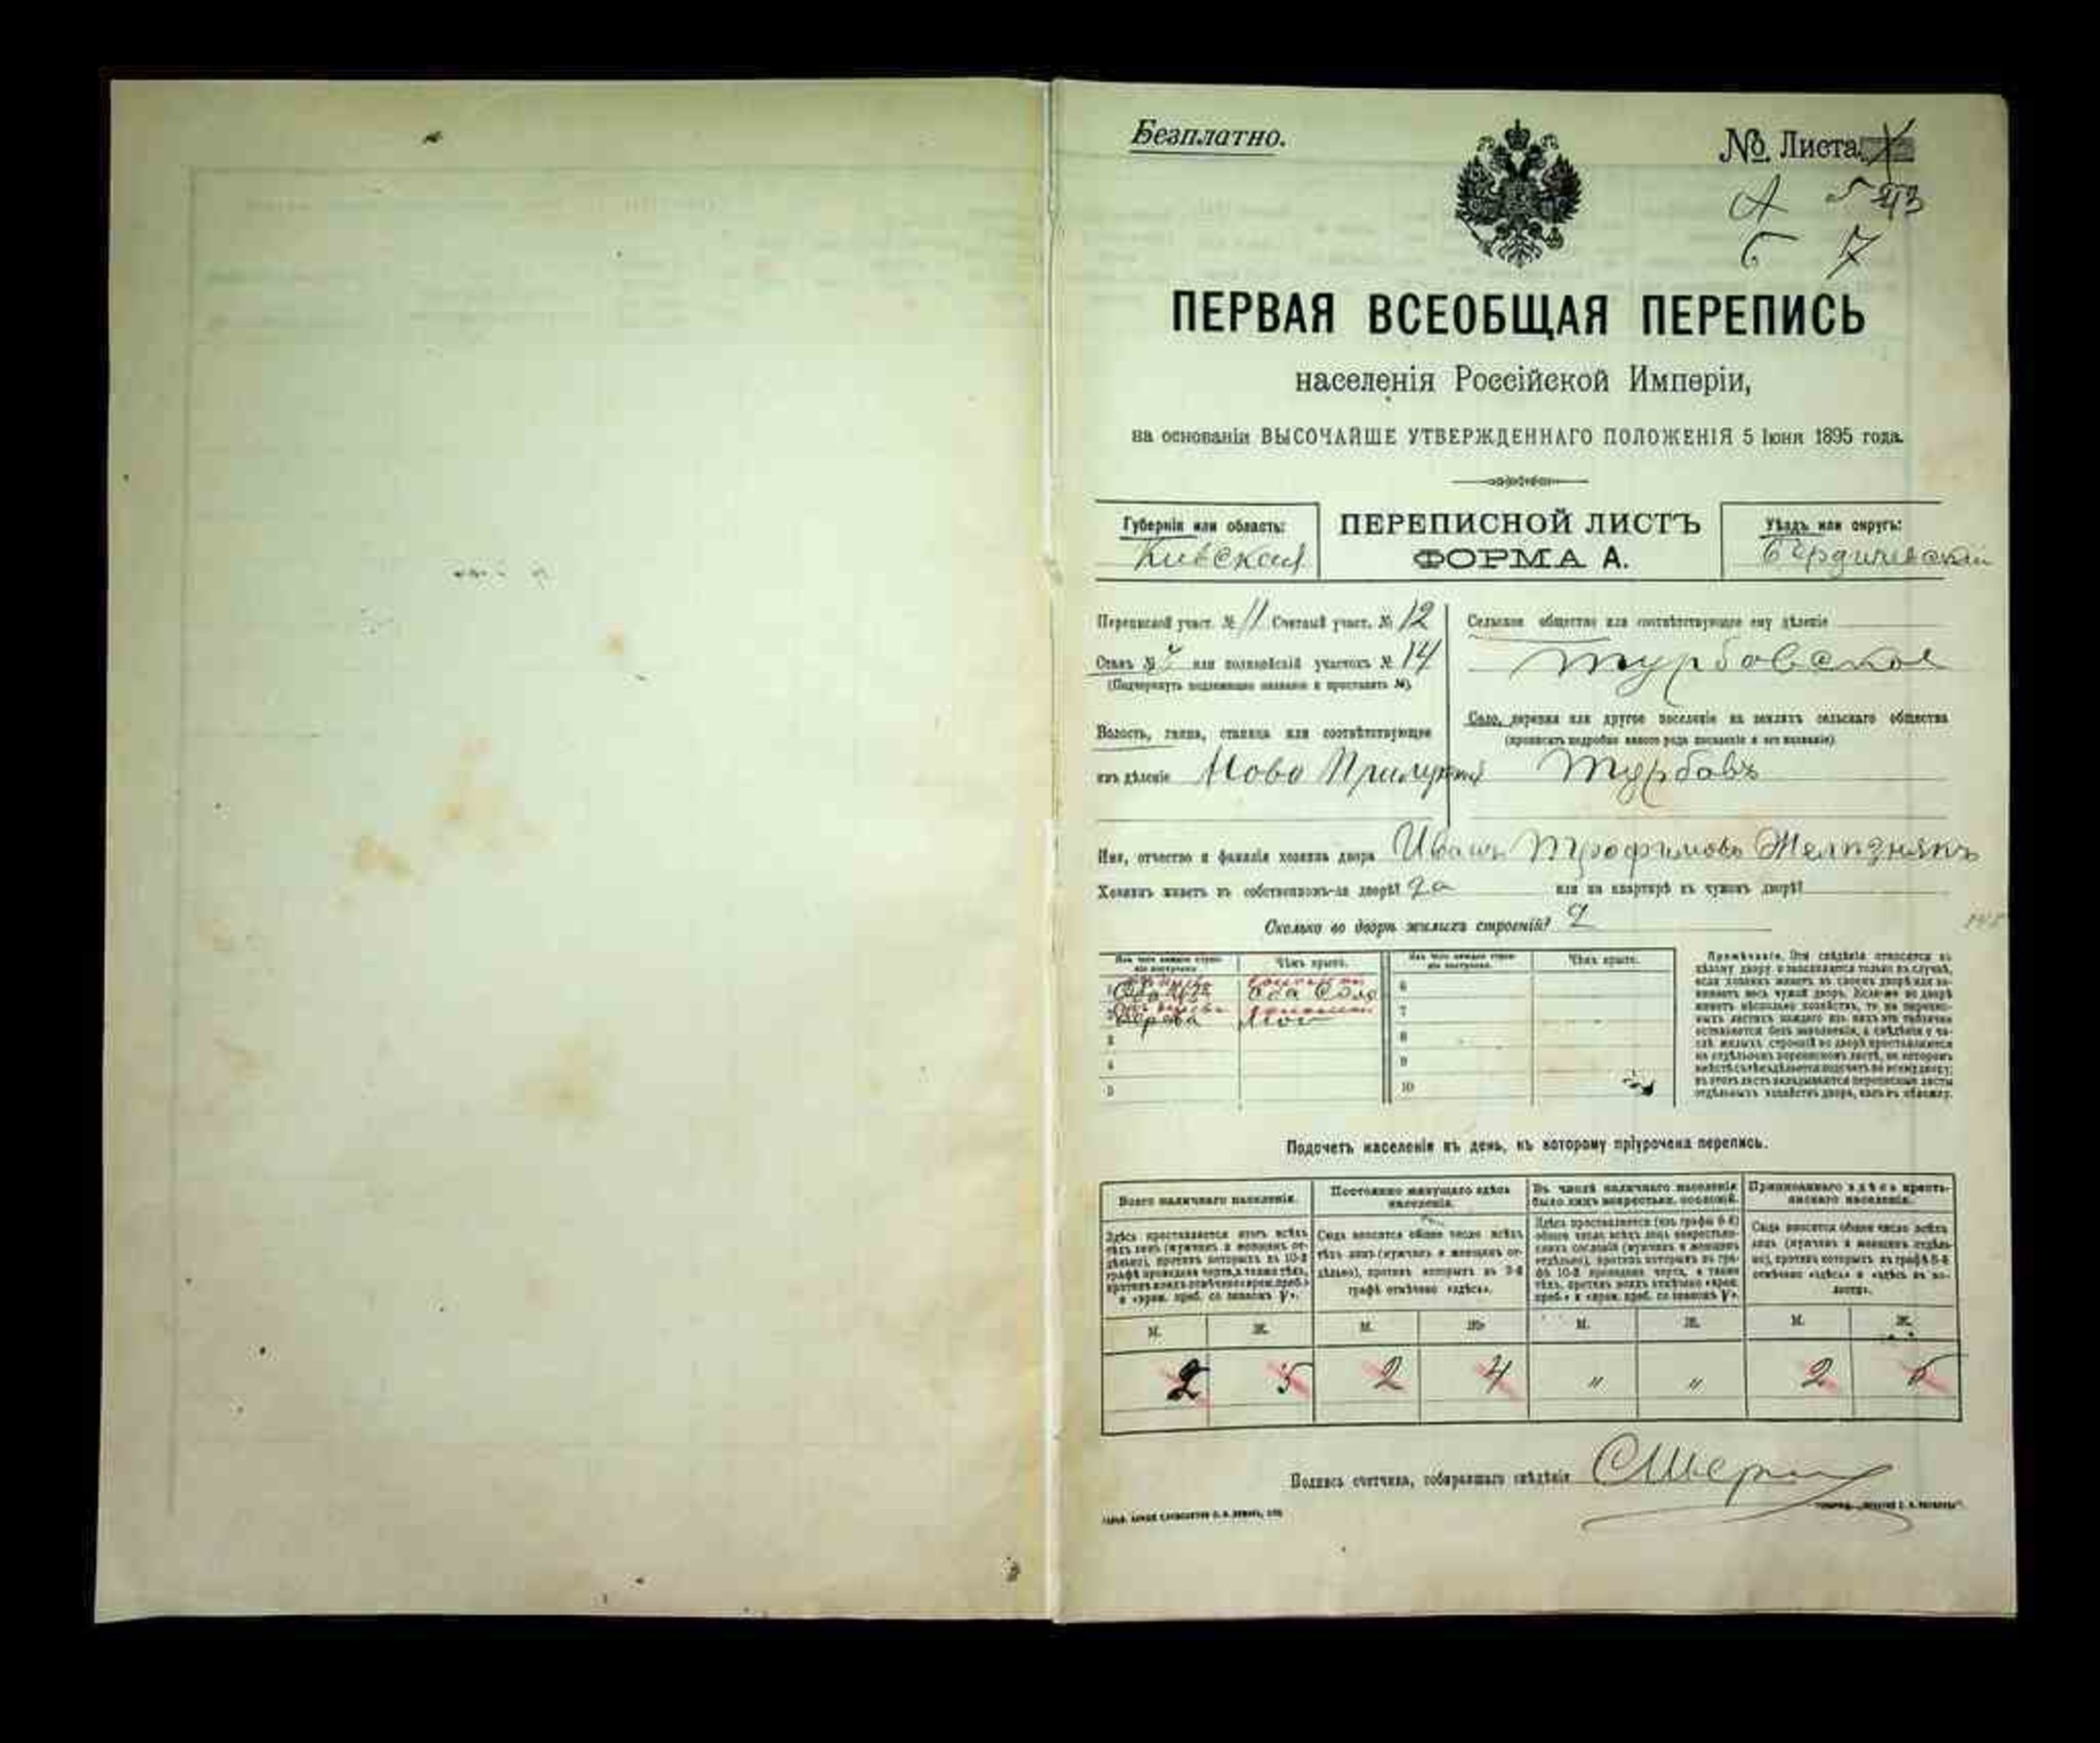 Безплатно.
№ Листа
А 5 43
6 7
ПЕРВАЯ ВСЕОБЩАЯ ПЕРЕПИСЬ
населенія Россійской Имперіи,
на основаніи ВЫСОЧАЙШЕ УТВЕРЖДЕННАГО ПОЛОЖЕНІЯ 5 Іюня 1895 года.
Губернія или область:
Кіевская
ПЕРЕПИСНОЙ ЛИСТЪ
ФОРМА А.
Уѣздъ или округъ:
Бердичевскій
Переписной участ. № 11 Счетный участ. № 12
Станъ № или полицейскій участокъ № 14
(Подчеркнуть подлежащее названіе и проставить №).
Волость, гмина, станица или соотвѣтствующее
имъ дѣленіе Ново Прилукская
Сельское общество или соотвѣтствующее ему дѣленіе
Турбовское
Село, деревня или другое поселеніе на земляхъ сельскаго общества
(прописать подробно какого рода поселеніе и его названіе)
Турбовъ
Имя, отчество и фамилія хозяина двора Иванъ Трофимовъ Желѣзнякъ
Хозяинъ живетъ въ собственномъ-ли дворѣ? да или на квартирѣ въ чужомъ дворѣ?
Сколько во дворѣ жилыхъ строеній? 2
Изъ чего каждое строеніе построено. Чѣмъ крыто. Изъ чего каждое строеніе построено. Чѣмъ крыто.
1 Оба изъ Оба Соло 6
2 дерева мой 7
3 8
4 9
5 10
Примѣчаніе. Эти свѣдѣнія относятся къ
цѣлому двору и заполняются только въ случаѣ,
если хозяинъ живетъ въ своемъ дворѣ или занимаетъ
весь чужой дворъ. Если-же во дворѣ
живетъ нѣсколько хозяйствъ, то на переписныхъ
листахъ каждаго изъ нихъ эта табличка
оставляется безъ заполненія, а свѣдѣнія о числѣ
жилыхъ строеній во дворѣ проставляются
на отдѣльномъ переписномъ листѣ, на которомъ
вмѣстѣ съ тѣмъ дѣлается подсчетъ по всему двору;
въ этотъ листъ вкладываются переписные листы
отдѣльныхъ хозяйствъ двора, какъ въ обложку.
Подсчетъ населенія въ день, къ которому пріурочена перепись.
Всего наличнаго населенія.
Здѣсь проставляется итогъ всѣхъ
тѣхъ лицъ (мужчинъ и женщинъ отдѣльно),
противъ которыхъ въ 10-й
графѣ проведена черта, а также тѣхъ,
противъ коихъ отмѣчено «врем. преб.»
и «врем. преб. со знакомъ V».
Постоянно живущаго здѣсь
населенія.
Сюда вносится общее число всѣхъ
тѣхъ лицъ (мужчинъ и женщинъ отдѣльно),
противъ которыхъ въ 9-й
графѣ отмѣчено «здѣсь».
Въ числѣ наличнаго населенія
было лицъ некрестьян. сословій.
Здѣсь проставляется (изъ графы 6-й)
общее число всѣхъ лицъ некрестьянскихъ
сословій (мужчинъ и женщинъ
отдѣльно), противъ которыхъ въ графѣ
10-й проведена черта, а также
тѣхъ, противъ коихъ отмѣчено «врем.
преб.» и «врем. преб. со знакомъ V».
Приписаннаго здѣсь крестьянскаго
населенія.
Сюда вносится общее число всѣхъ
лицъ (мужчинъ и женщинъ отдѣльно),
противъ которыхъ въ графѣ 8-й
отмѣчено «здѣсь» и «здѣсь въ волости».
М. Ж. М. Ж. М. Ж. М. Ж.
2 5 2 4 " " 2 5
Подпись счетчика, собиравшаго свѣдѣнія